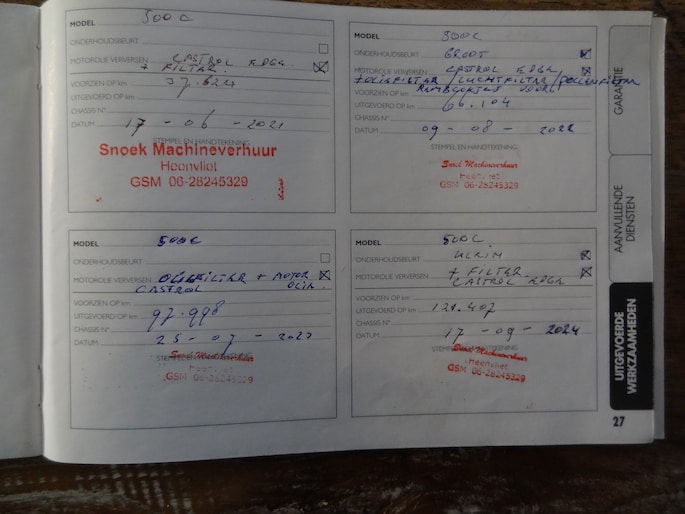 MODEL 500C
ONDERHOUDSBEURT
MOTOROLIE VERVERSEN CASTROL EDGE
+ FILTER.
VOORZIEN OP km
UITGEVOERD OP km
CHASSIS N°
DATUM 17 - 06 - 2021
STEMPEL EN HANDTEKENING
Snoek Machineverhuur
Heenvliet
GSM 06-28245329
500C
MODEL
ONDERHOUDSBEURT GROOT
MOTOROLIE VERVERSEN CASTROL EDGE
+ OLIEFILTER / LUCHTFILTER / POLLENFILTER
REMBLOKJES VOOR
VOORZIEN OP km
UITGEVOERD OP km 66.104
CHASSIS N°
DATUM 09 - 08 - 2022
STEMPEL EN HANDTEKENING
Snoek Machineverhuur
Heenvliet
GSM 06-28245329
MODEL 500C
ONDERHOUDSBEURT
MOTOROLIE VERVERSEN OLIEFILTER + MOTOR
CASTROL OLIE.
VOORZIEN OP km
UITGEVOERD OP km 97.998
CHASSIS N°
DATUM 25 - 07 - 2023
Snoek Machineverhuur
Heenvliet
GSM 06-28245329
MODEL 500C.
ONDERHOUDSBEURT KLEIN
MOTOROLIE VERVERSEN + FILTER
CASTROL EDGE
VOORZIEN OP km
UITGEVOERD OP km 121.407
CHASSIS N°
DATUM 17 - 09 - 2024
Snoek Machineverhuur
Heenvliet
GSM 06-28245329
GARANTIE
AANVULLENDE
DIENSTEN
UITGEVOERDE
WERKZAAMHEDEN
27